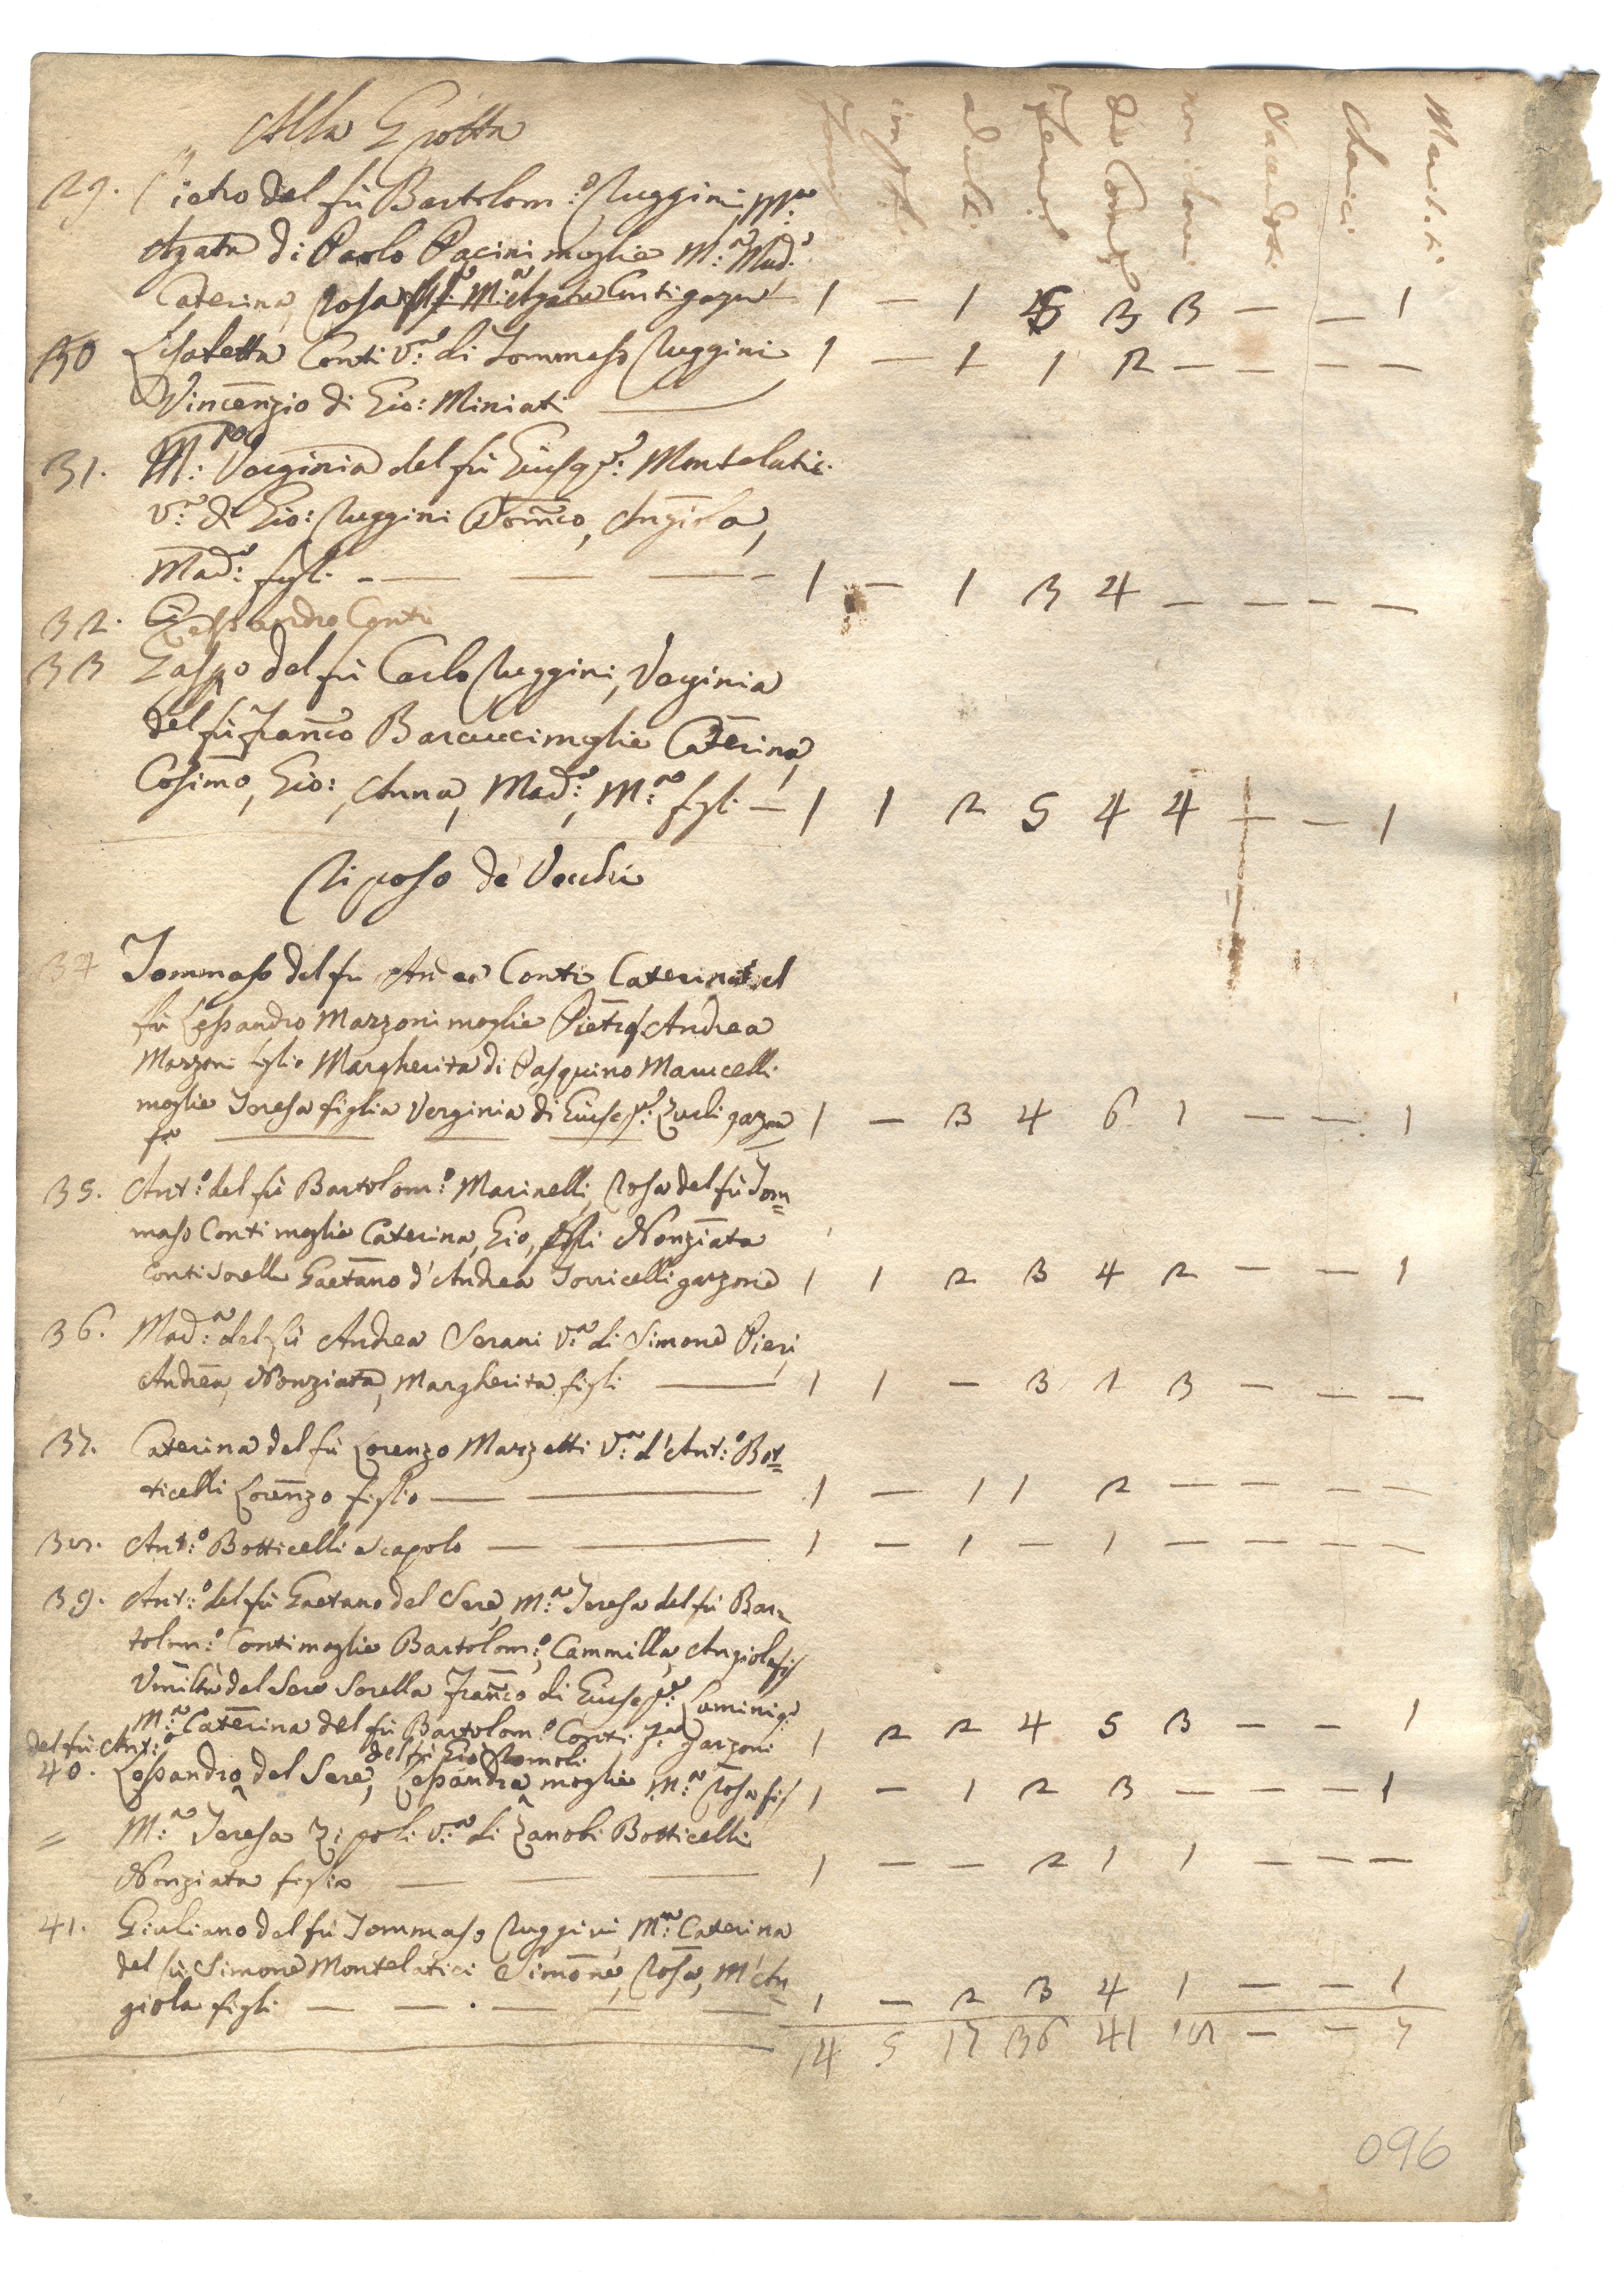 Alla Grotta
Maschi infti. adulti Femi. da Com. non com. Sacerdoti Cherici Mariti.
29. Pietro del fù Bartolom:o Ruggini, M:a
Agata di Paolo Pacini moglie M:a Mad:a
Caterina, Rosa M:a Agata Conti 1 — 1 5 3 3 — — 1
30 Lisabetta Conti V:a di Tommaso Ruggini 1 — 1 1 2 — — — —
Vincenzio di Gio: Miniati
31. M:a Verginia del fù Giusep:e Montelatici
V:a di Gio: Ruggini Domco, Angiola,
Mad:a figli — 1 — 1 3 4 — — — —
32. Lessandro Conti
33 Gaspo del fù Carlo Ruggini, Verginia
del fù Franco Baraucci moglie Caterina,
Cosimo, Gio:, Anna, Mad:a, M:a figli — 1 1 2 5 4 4 — — 1
Riposo de Vecchi
34 Tommaso del fu Andea Conti Caterina del
fù Lessandro Marzoni moglie Pietro Andrea
Marzoni figlio Margherita di Pasquino Marucelli
moglie Teresa figlia Verginia di Giusep:e garzon 1 — 3 4 6 1 — — 1
fa
35. Ant:o del fù Bartolom:o Marinelli, Rosa del fù Tom=
maso Conti moglie Caterina, Gio, figli Nonziata
Conti Sorella Gaetano d'Andrea Torricelli garzone 1 1 2 3 4 2 — — 1
36. Mad:a del fù Andrea Serani V:a di Simone Pieri,
Andrea, Nonziata, Margherita figli — 1 1 — 3 1 3 — — —
37. Caterina del fù Lorenzo Marzetti V:a d'Ant:o Bot=
ticelli Lorenzo figlio — 1 — 1 1 2 — — — —
38. Ant:o Botticelli scapolo — 1 — 1 — 1 — — — —
39. Ant:o del fù Gaetano del Sere, M:a Teresa del fù Bar=
tolom:o Conti moglie Bartolom:o, Cammilla, Angiola figl
Umiltà del Sere Sorella Franco di Giusep:e
M:a Caterina del fù Bartolom:o Conti garzoni 1 2 2 4 5 3 — — 1
del fù Ant:o del fù Gio Romoli
40. Lessandro del Sere, Lessandra moglie M:a Rosa figl 1 — 1 2 3 — — — 1
= M:a Teresa Zipoli V:a di Zanobi Botticelli
Nonziata figlia — 1 — — 2 1 1 — — —
41. Giuliano del fù Tommaso Ruggini, M:a Caterina
del fù Simone Montelatici Simone, Rosa, M'An
giola figli — 1 — 2 3 4 1 — — 1
14 5 17 36 41 18 — — 7
096